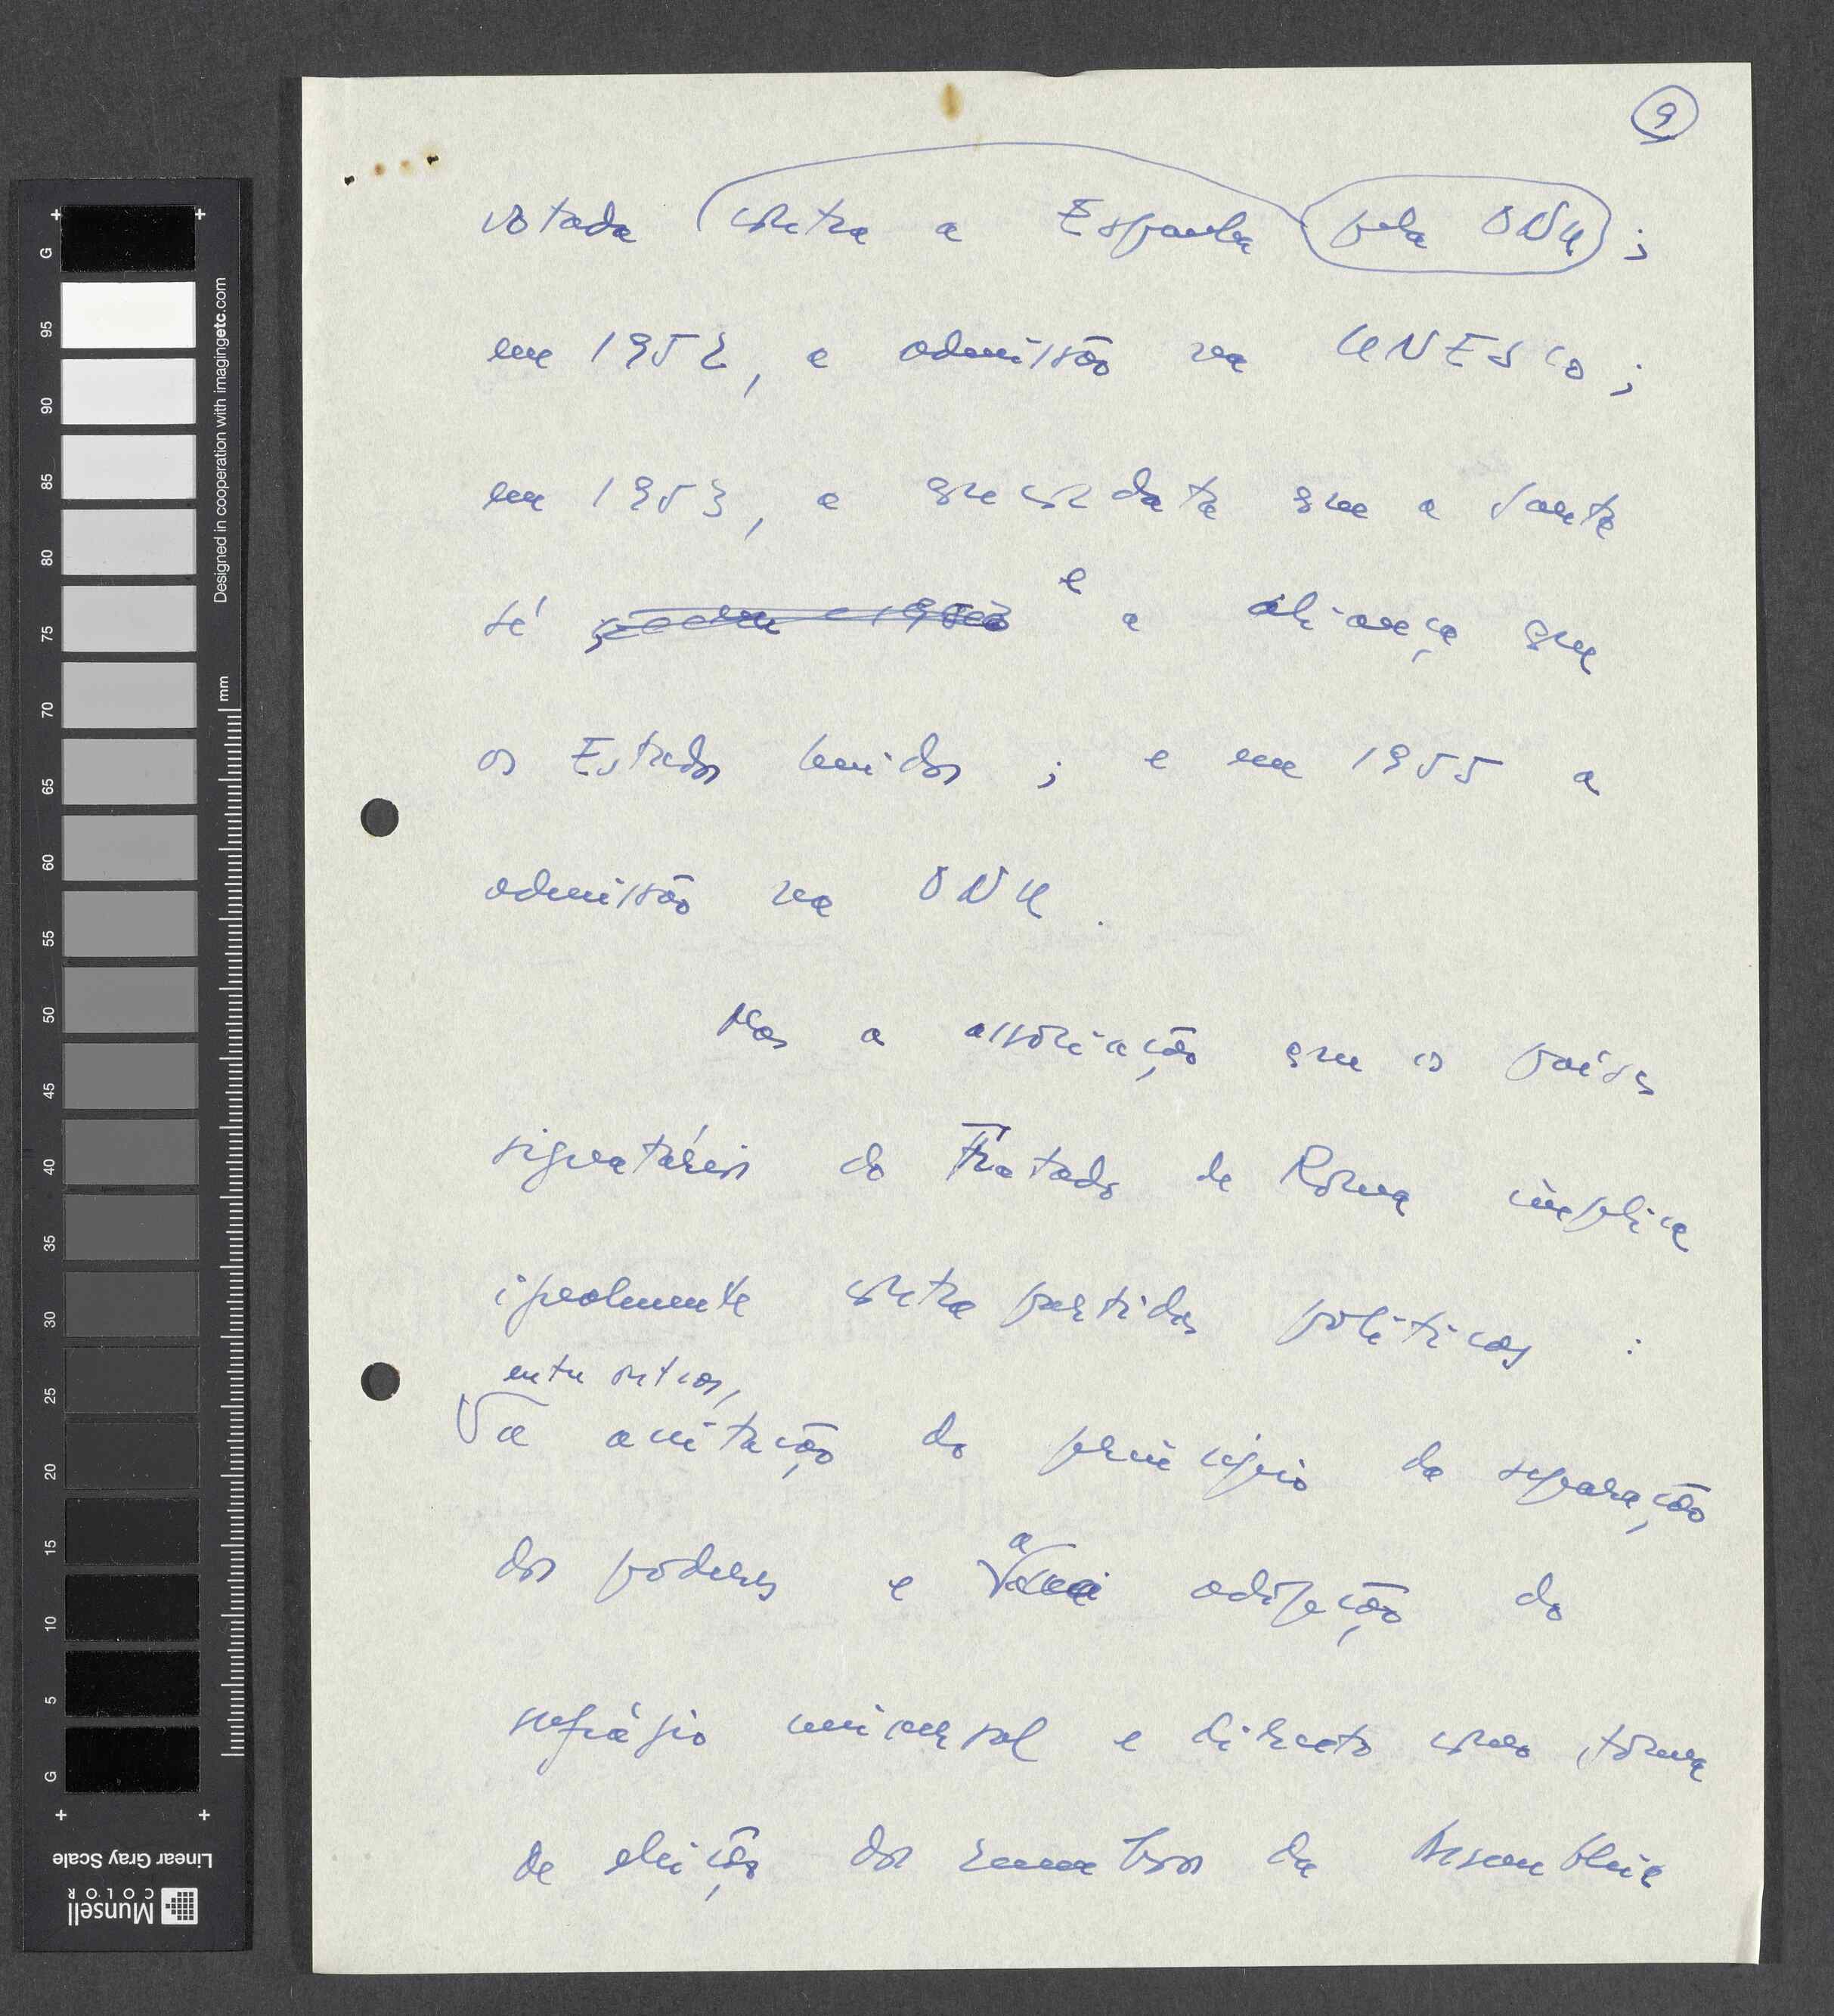 9
votada contra a Espanha pela ONU ;
em 1952, a admissão na UNESCO ;
em 1953, a concordata com a Santa
Sé e a aliança com
os Estados Unidos ; e em 1955 a
admissão na ONU .
Mas a associação com os países
signatários do Tratado de Roma implica
igualmente contrapartidas políticas :
entre outras,
a aceitação do princípio da separação
dos poderes e a adopção do
sufrágio universal e directo como forma
de eleição dos membros da Assembleia
G
95
90
85
80
75
70
65
60
55
50
45
40
35
30
25
20
15
10
5
G
Designed in cooperation with imagingetc.com
mm
Linear Gray Scale
Munsell
COLOR